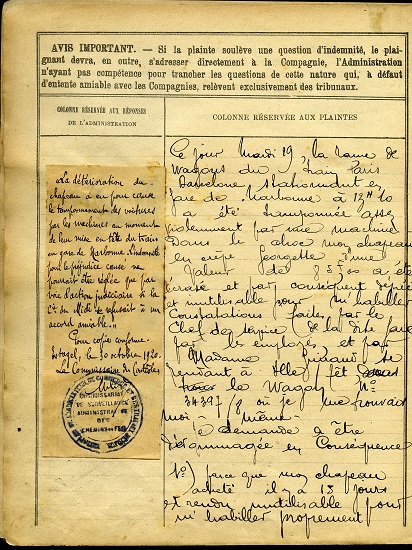 AVIS IMPORTANT. — Si la plainte soulève une question d'indemnité, le plai-
gnant devra, en outre, s'adresser directement à la Compagnie, l'Administration
n'ayant pas compétence pour trancher les questions de cette nature qui, à défaut
d'entente amiable avec les Compagnies, relèvent exclusivement des tribunaux.
COLONNE RÉSERVÉE AUX RÉPONSES
DE L'ADMINISTRATION
« La détérioration du
chapeau a eu pour cause
le tamponnement des voitures
par les machines au moment
de leur mise en tête du train
en gare de Narbonne. L'indemnité
pour le préjudice causé ne
pourrait être réglée que par
voie d'action judiciaire si la
Cie du Midi se refusait à un
accord amiable. »
Pour copie conforme
le 30 octobre 1920.
Le Commissaire de Contrôle
COMMISSARIAT
DE SURVEILLANCE
ADMINISTRATIVE
DES
CHEMINS DE FER
COLONNE RÉSERVÉE AUX PLAINTES
Ce jour Mardi 19, la rame de
Wagons du train Paris
Barcelone stationnant en
gare de Narbonne à 12 H 10
a été tamponnée assez
violemment par une machine
Dans le choc mon chapeau
en crêpe georgette d'une
Valeur de 85 f 00 a été
écrasé et par conséquent
et inutilisable pour m'habiller
Constatations faites par le
Chef de service de la dite gare
par les employés et par
Madame
se rendant à
le Wagon No
34397/8 où je me trouvais
moi-même.
Je demande à être
dédommagée en Conséquence
No) parce que mon chapeau
acheté il y a 15 jours
est rendu inutilisable pour
m'habiller proprement